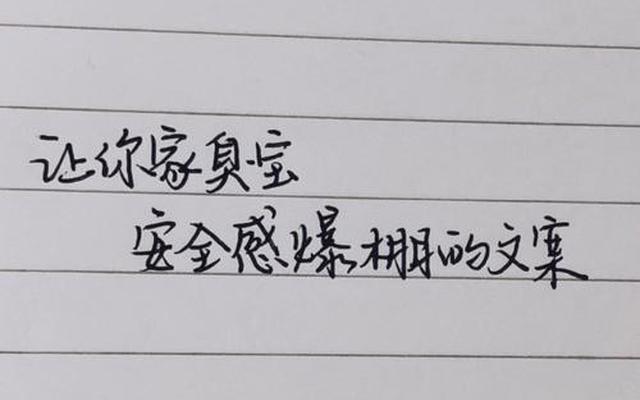 让你家臭宝
安全感爆棚的文案